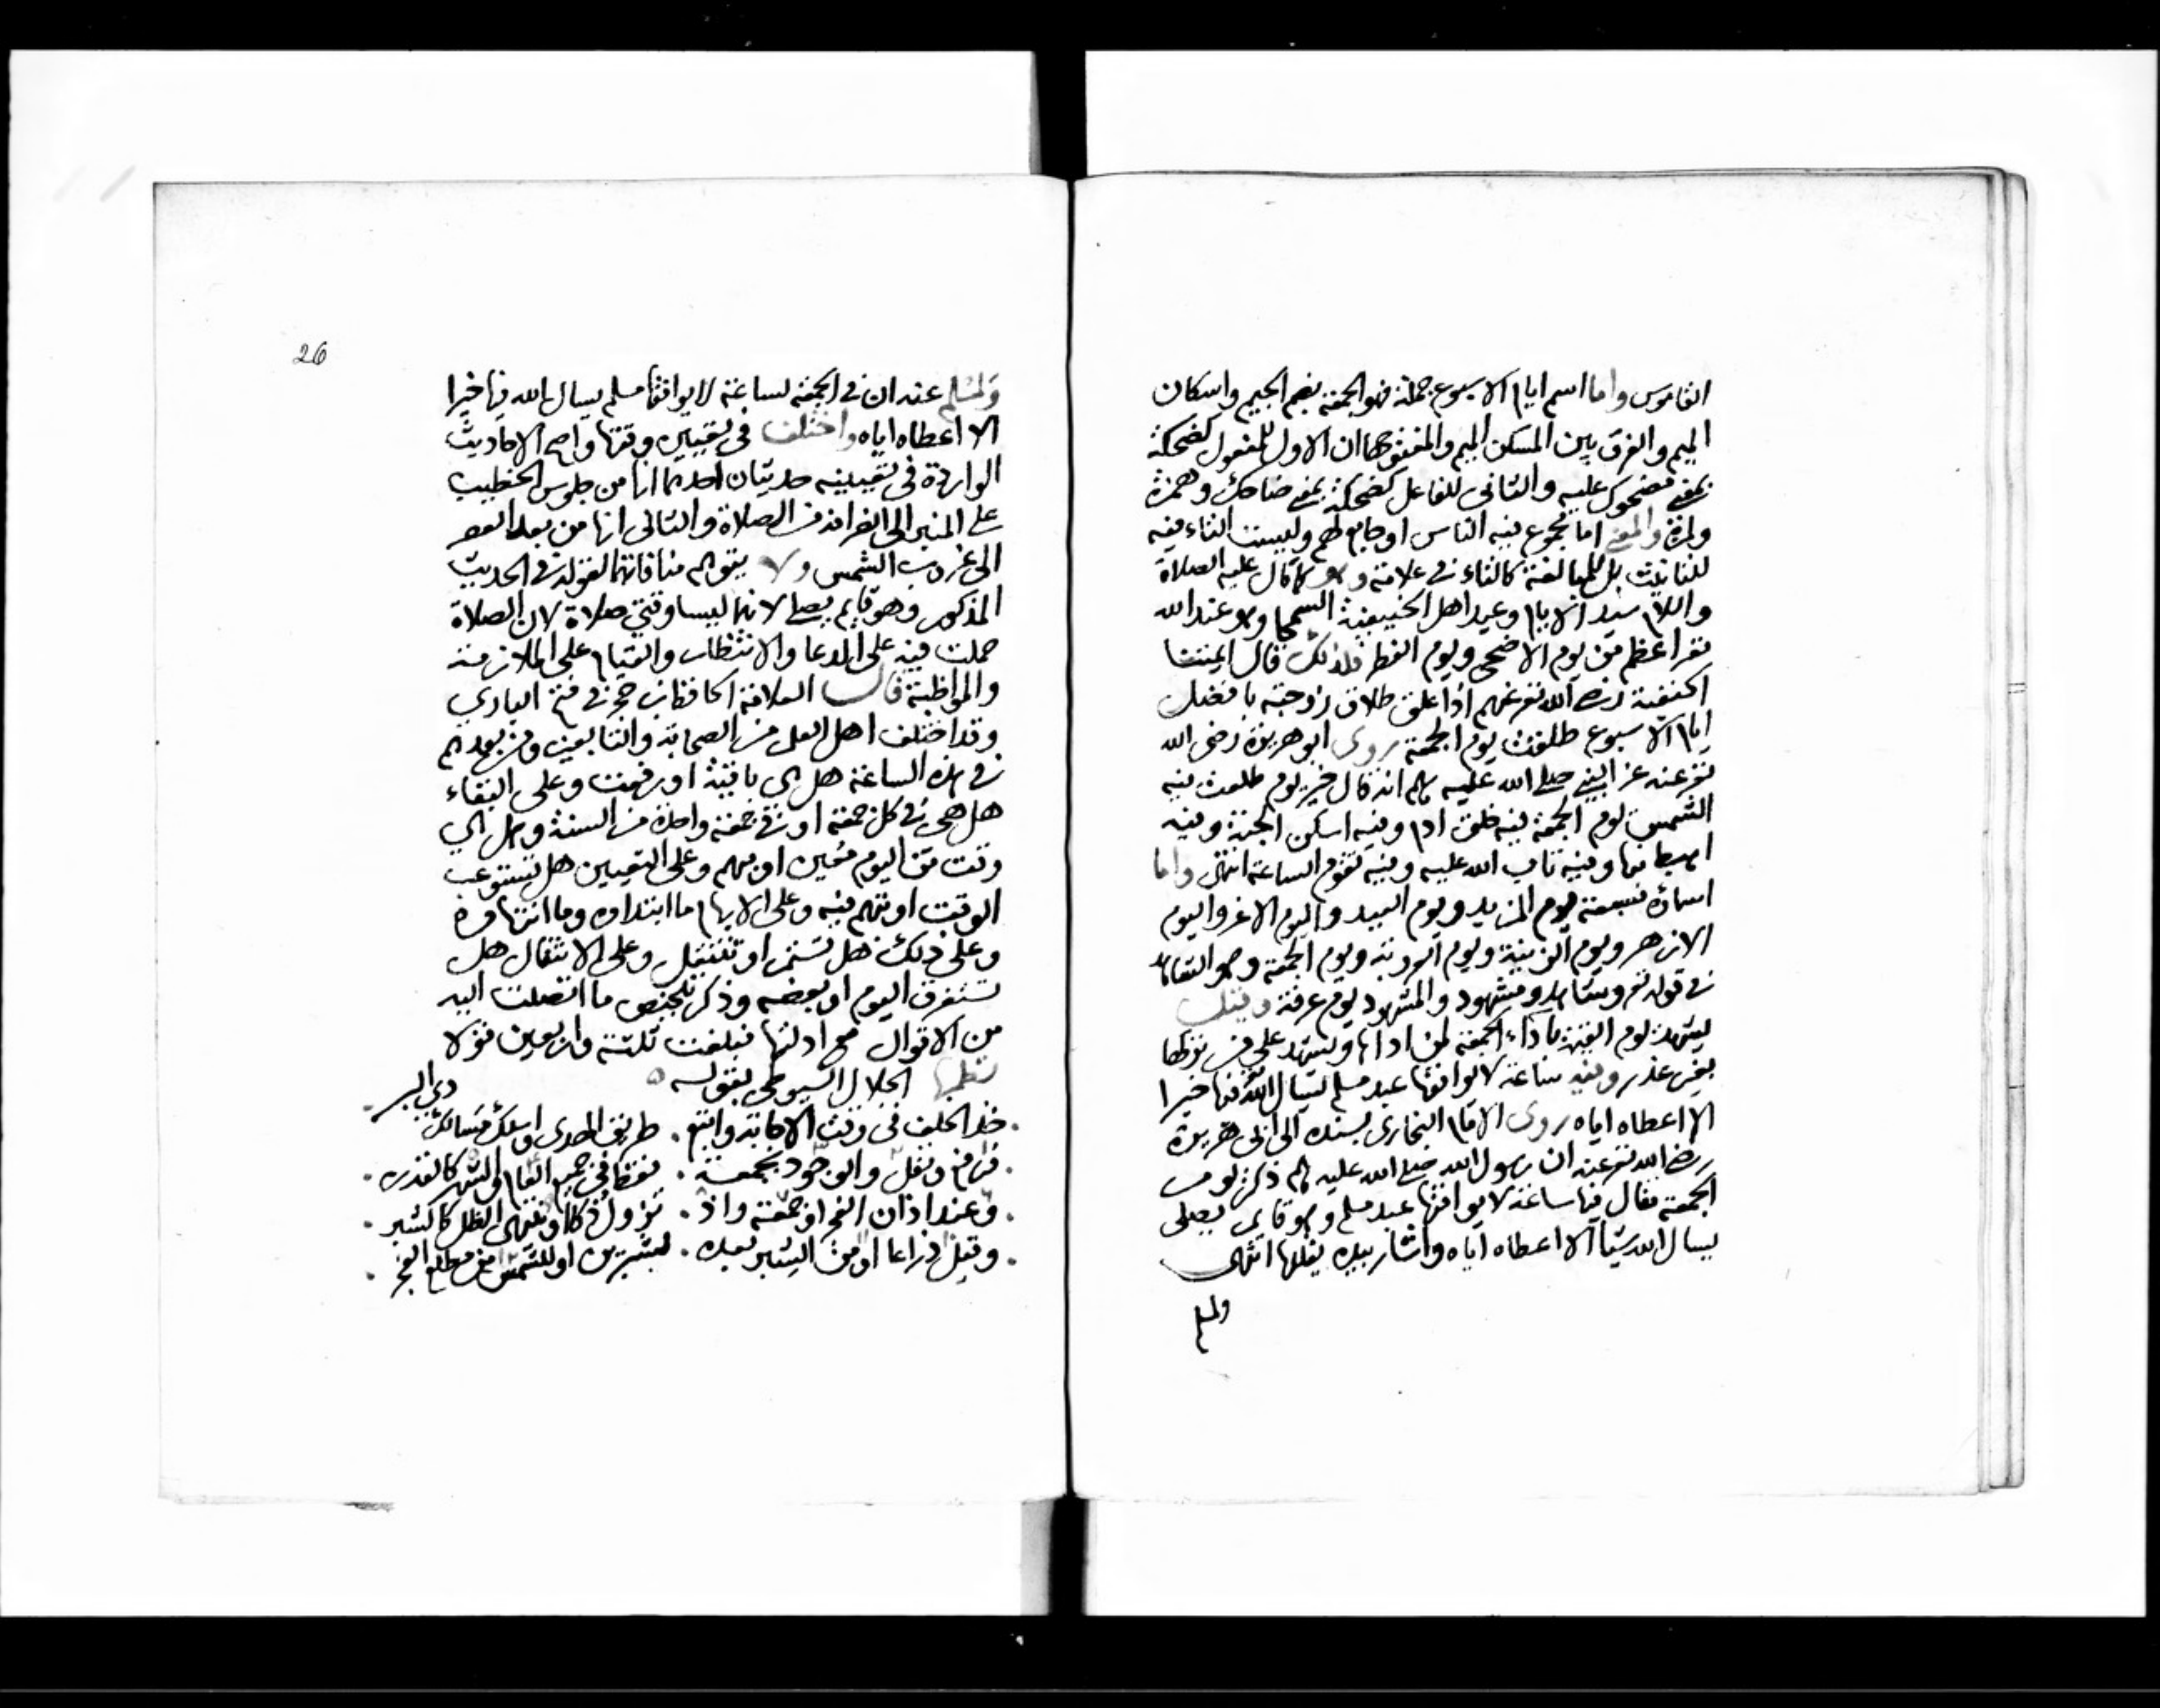 القاموس واما اسم ايام الاسبوع جملة فهو الجمعة بضم الجيم واسكان
الميم والفرق بين المسكن الميم والمفتوحها ان الاول للمفعول كضحكة
بمعنى مضحوك عليه والثاني للفاعل كضحكة بمعنى ضاحك وهمزة
ولمزة والمعنى اما مجموع فيه الناس او جامع لهم وليست التاء فيه
للتانيث بل للمبالغة كالتاء في علامة وهو كما قال عليه الصلاة
والسلام سيد الايام وعيد اهل الحنيفية السمحا وهو عند الله
تعر اعظم من يوم الاضحى ويوم الفطر فلذلك قال ايمتنا
الحنفية رضي الله تعر عنهم اذا علق طلاق زوجته بافضل
ايام الاسبوع طلقت يوم الجمعة روى ابو هريرة رضي الله
تعر عنه عن النبي صلى الله عليه وسلم انه قال خير يوم طلعت فيه
الشمس يوم الجمعة فيه خلق ادم وفيه اسكن الجنة وفيه
اهبط منها وفيه تاب الله عليه وفيه تقوم الساعة انتهى واما
اسماؤه فسبعة يوم المزيد ويوم العيد واليوم الاغر واليوم
الازهر ويوم الزينة ويوم العروبة ويوم الجمعة وهو الشاهد
في قوله تعر وشاهد ومشهود والمشهود يوم عرفة وقيل
يشهد يوم القيمة باداء الجمعة لمن اداها ويشهد على من تركها
بغير عذر وفيه ساعة لا يوافقها عبد مسلم يسال الله فيها خيرا
الا اعطاه اياه روى الامام البخاري بسنده الى ابي هريرة
رضي الله تعر عنه ان رسول الله صلى الله عليه وسلم ذكر يوم
الجمعة فقال فيها ساعة لا يوافقها عبد مسلم وهو قايم يصلي
يسال الله شيا الا اعطاه اياه واشار بيده يقللها انتهى
ولمسلم
26
ولمسلم عنه ان في الجمعة لساعة لا يوافقها مسلم يسال الله فيها خيرا
الا اعطاه اياه واختلف في تعيين وقتها واصح الاحاديث
الواردة في تعيينه حديثان احدهما انها من جلوس الخطيب
على المنبر الى انفراغه من الصلاة والثاني انها من بعد العصر
الى غروب الشمس ولا يتوهم منافاتهما لقوله في الحديث
المذكور وهو قايم يصلي لانهما ليسا وقتي صلاة لان الصلاة
حملت فيه على الدعا والانتظار والقيام على الملازمة
والمواظبة قال العلامة الحافظ ابن حجر في فتح الباري
وقد اختلف اهل العلم من الصحابة والتابعين ومن بعدهم
في هذه الساعة هل هي باقية او رفعت وعلى البقاء
هل هي في كل جمعة او في جمعة واحدة من السنة وهل هي
وقت من اليوم معين او مبهم وعلى التعيين هل تستوعب
الوقت او تبهم فيه وعلى الابهام ما ابتداوه وما انتهاوه
وعلى ذلك هل تستمر او تنتقل وعلى الانتقال هل
تستغرق اليوم او بعضه وذكر تلخيص ما اتصلت اليه
من الاقوال مع ادلتها فبلغت ثلثة واربعين قولا
نظمها الجلال السيوطي بقوله
خذ الخلف في وقت الاجابة واتبع . طريق الهدى واسلك مسالك ذي البر
فرفع ونقل والوجود بجمعة . فقط في جميع العام والشهر كالقدر
وعند اذان الفجر او جمعة واذ . تزول ذكا او ينتهي الظل كالشبر
وقبل ذراعا او من الشبر بعده . لشبرين او للشمس من مطلع الفجر